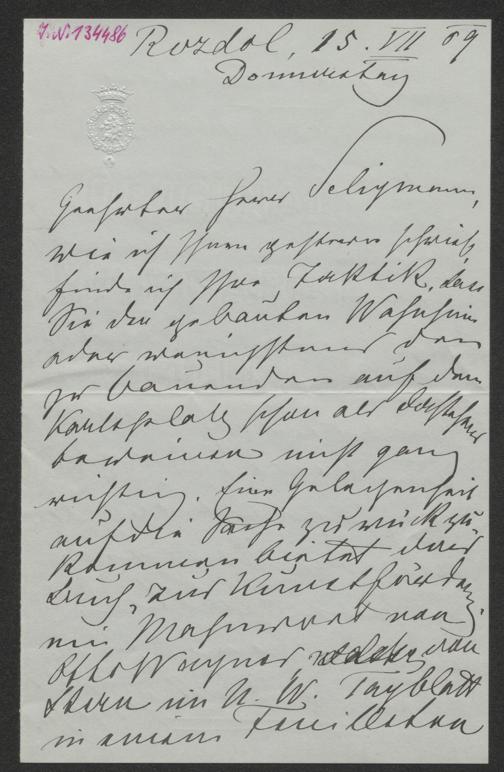 J.N. 134486
Rozdol, 15. VII 09
Donnerstag
Geehrter Herr Seligmann,
wie ich Ihnen gestern schrieb
finde ich Ihre Taktik, dass
Sie den gebauten
oder wenigstens den
zu bauenden auf dem
Karlsplatz schon als
beweinen nicht ganz
richtig. Eine Gelegenheit
auf die Sache zurückzu
kommen bietet das
Buch „Zur Kunstförderung,
ein Mahnwort von
Otto Wagner welches von
Stern im N. W. Tagblatt
in einem Feuilleton